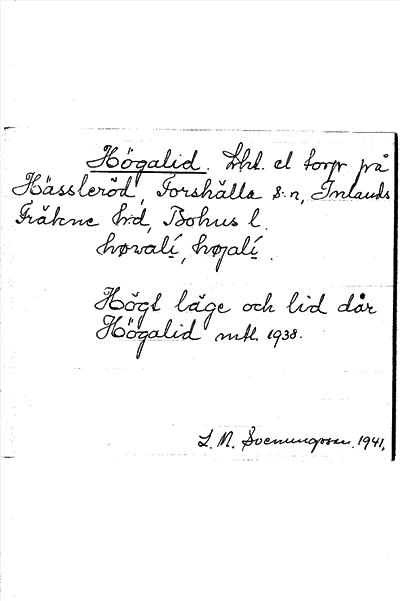 Högalid. Lht. el torp på
Hässleröd, Forshälla s:n, Inlands
Fräkne h:d, Bohus l.
høvalí, højalí.
Högt läge och lid där
Högalid mtl. 1938.
L. N. Svenungsson. 1941.